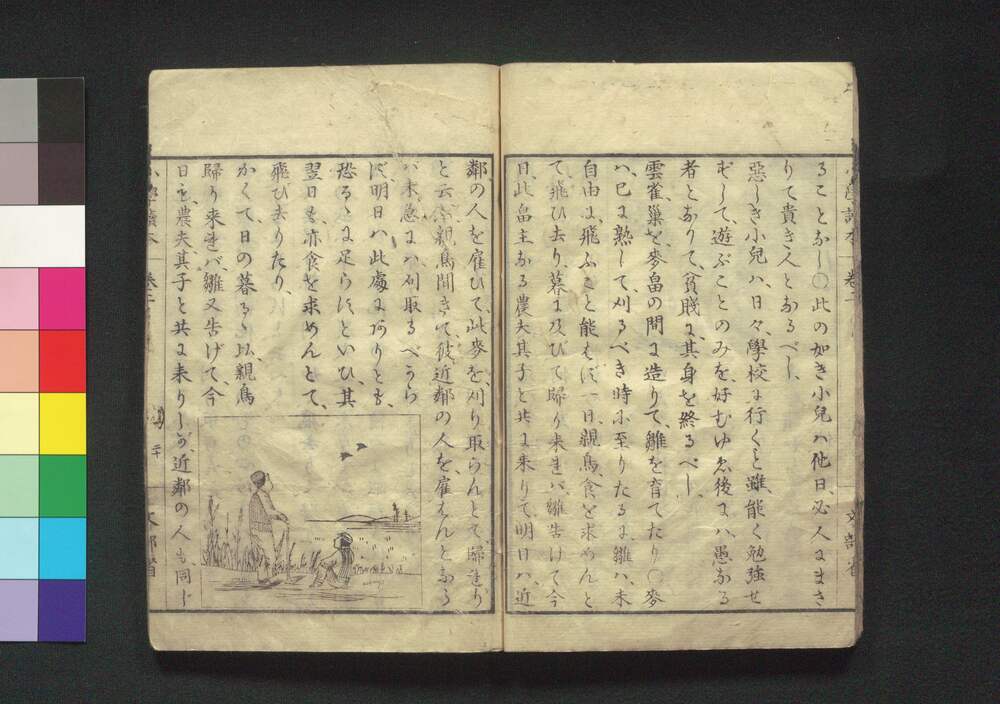 ることなし〇此の如き小兒ハ他日必人にまさ
りて貴き人となるべし、
惡しき小兒ハ、日々、學校に行くと雖、能く勉強せ
ずして、遊ぶことのみを、好むゆゑ後にハ、愚なる
者となりて、貧賤に其身を終るべし、
雲雀、巢を、麥畠の間に造りて、雛を育てたり〇麥
ハ、已に熟して、刈るべき時に至りたるに、雛ハ、未
自由に、飛ふこと能はず、一日、親鳥、食を求めんと
て、飛び去り、暮に及びて歸り来れバ、雛告けて、今
日、此畠主なる農夫其子と共に来りて、明日ハ、近
鄰の人を雇ひて、此麥を刈り取らんとて、歸れり
と云ふ、親鳥聞きて、彼、近鄰の人を、雇はんとなら
バ未急にハ刈取るべから
ず、明日ハ此處にありとも、
恐るゝに足らずといひ、其
翌日も、亦食を求めんとて、
飛び去りたり、
かくて、日の暮るゝ比、親鳥
歸り来れバ、雛又告げて、今
日も、農夫其子と共に来りしが、近鄰の人も同じ
小學讀本 卷二
文部省
小學讀本 卷二
文部省